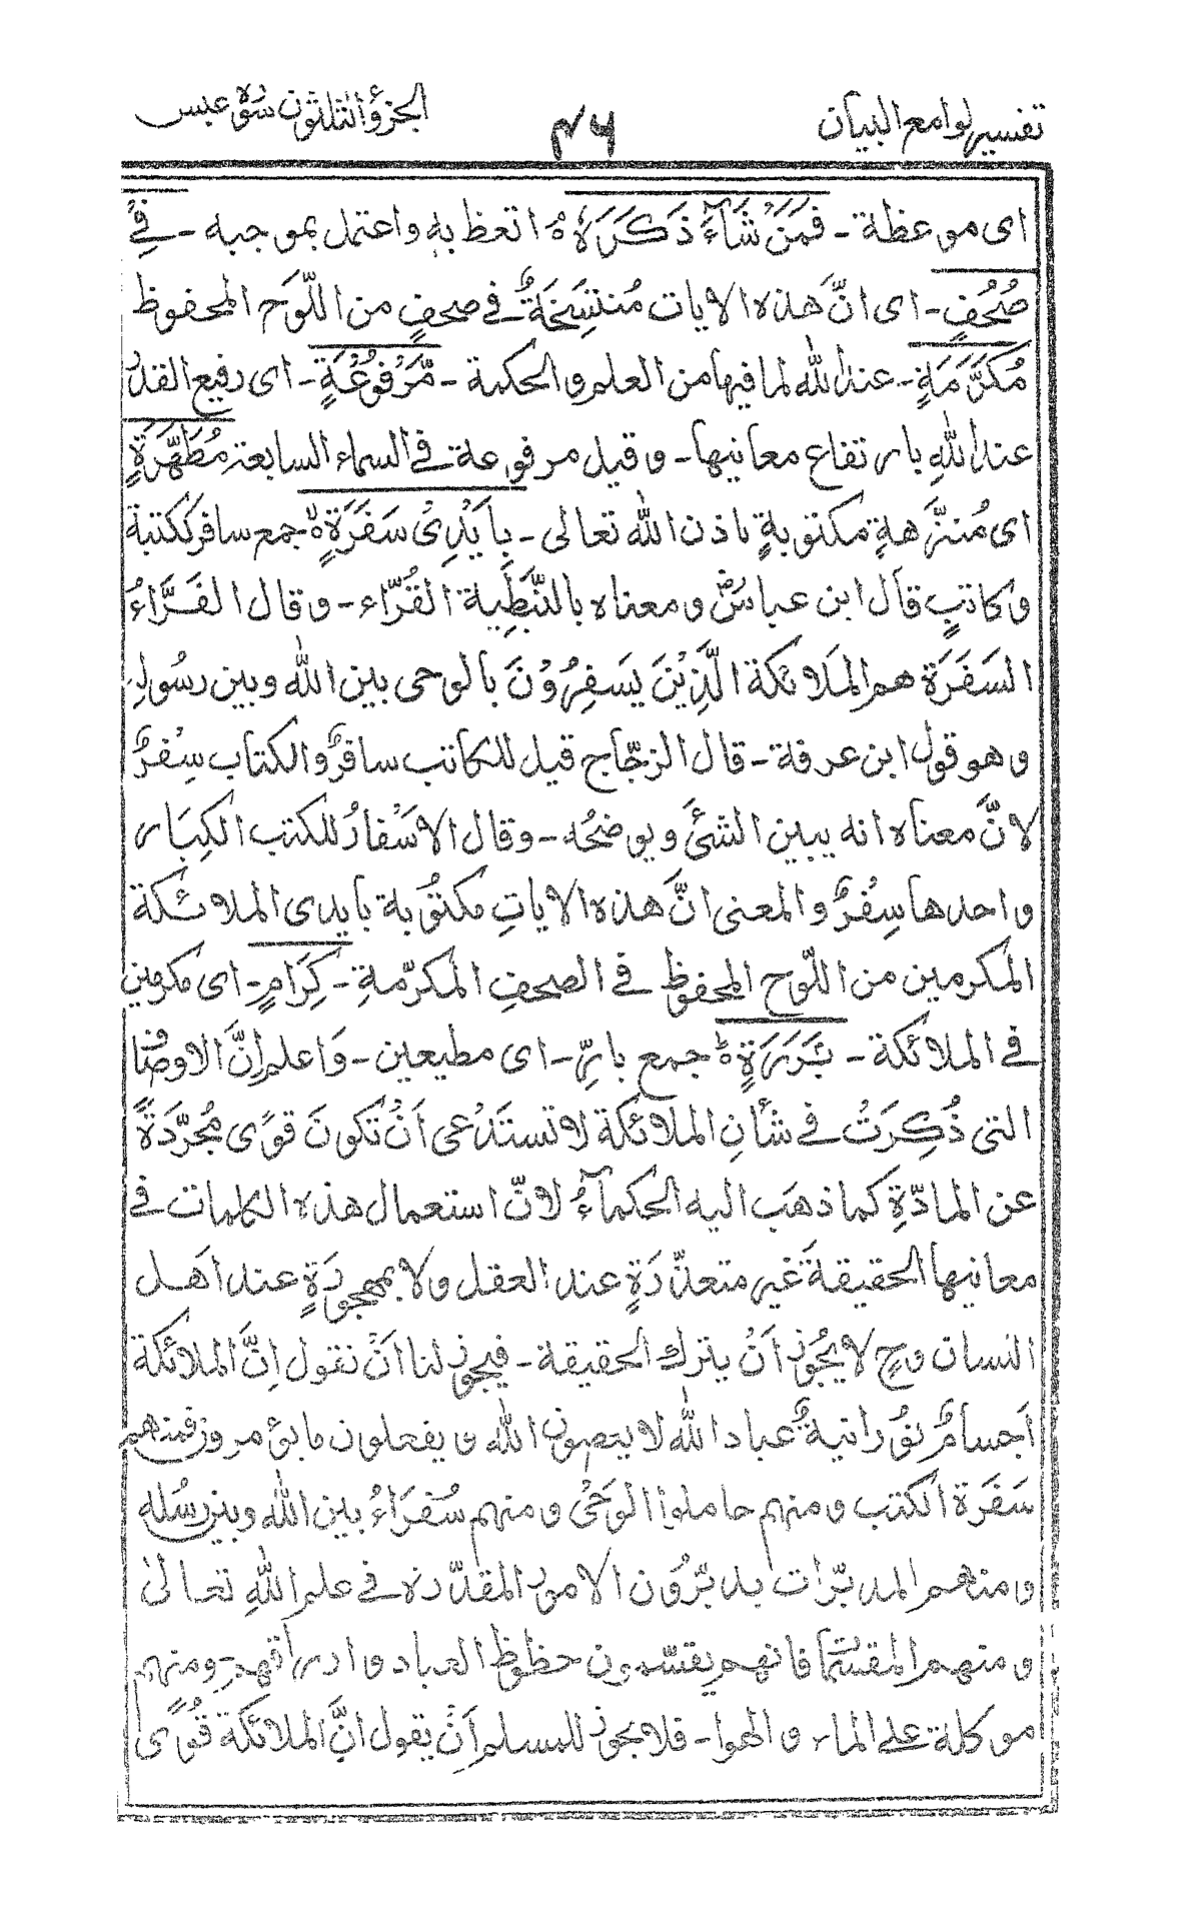 تفسير لوامع البيان ۴۶ الجزؤ الثلثون سورة عبس
اى موعظة - فَمَنْ شَآءَ ذَكَرَهٗ ۝ اتعظ به واعتمل بموجبه - فِىْ
صُحُفٍ - اى انّ هذه الايات مُنتسِخَةٌ فى صحفٍ من اللّوح المحفوظ
مُكَرَّمَةٍ - عند الله لما فيها من العلم والحكمة - مَّرْفُوْعَةٍ - اى رفيع القدر
عند اللهِ بارتفاع معانيها - وقيل مرفوعة فى السماء السابعة مُطَهَّرَةٍ
اى مُنزَّهةٍ مكتوبةٍ باذن الله تعالى - بِاَيْدِىْ سَفَرَةٍ ۝ جمع سافر ككتبة
وكاتبٍ قال ابن عباسؓ ومعناه بالنَّبَطِية القُرّاء - وقال الفَرَّاءُ
السَفَرَة هم المَلائكة الَّذِيْنَ يَسفِرُوْنَ بالوحى بين الله وبين رسُوله
وهو قول ابن عرفة - قال الزجّاج قيل للكاتب سافرٌ والكتاب سِفْرٌ
لانَّ معناه انه يبين الشئَ ويوضحُه - وقال الاسَفارُ للكتب الكِبَار
واحدها سِفْرٌ والمعنى انَّ هذه الاياتِ مكتُوبة بايدى الملائكة
المكرمين من اللّوح المحفوظ فى الصحفِ المكرّمةِ - كِرَامٍ - اى مكرمين
فى الملائكة - بَرَرَةٍ ۝ جمع بارٍّ - اى مطيعين - وَاعلم اِنَّ الاوصاف
التى ذُكِرَتُ فى شأنِ الملائكة لا تستَدْعى اَنْ تكونَ قوًى مُجرَّدَةً
عن المادّةِ كما ذهَب اليه الحكمآءُ لانّ استعمال هذه الكلمات فى
معانيها الحقيقة غير متعذّرَةٍ عند العقل ولا بمهجورَةٍ عند اَهل
النسان وح لا يجُوز اَنْ يترك الحقيقة - فيجوز لنا انْ نقول اِنَّ الملائكة
اَجسامٌ نُورانيةٌ عباد الله لا يعصون الله ويفعلون مايؤمرون فمنهم
سَفَرَة الكتب ومنهم حاملوا الوَحْىُ ومنهم سُفَرَاءُ بين الله وبين رسُله
ومنهم المدبّرات يدبّرُون الامور المقدّرة فى علم اللهِ تعالىٰ
ومنهم المقسّمات فانهم يقسّمون حظوظ العباد وارزاقهم - ومنهم
موكلة على الماء والهوا - فلا يجوز للمسلم اَنْ يقول انَّ الملائكة قُوًى